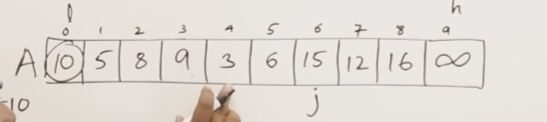 l h
0 1 2 3 4 5 6 7 8 9
A 10 5 8 9 3 6 15 12 16 ∞
=10 j